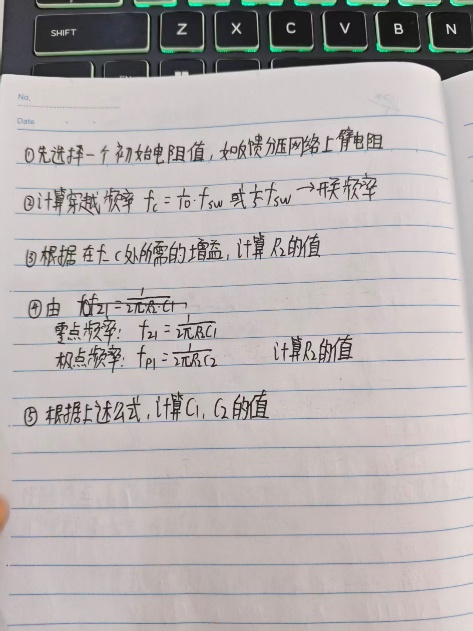 SHIFT Z X C V B N
No.
Date
①先选择一个初始电阻值，如反馈分压网络上臂电阻
②计算穿越频率 fc = 1/10·fsw 或 1/5 fsw → 开关频率
③根据在fc处所需的增益，计算R2的值
④由 fz1 = 1/2πR2·C1
零点频率：fz1 = 1/2πR2C1
极点频率：fp1 = 1/2πR2C2 计算R2的值
⑤根据上述公式，计算C1，C2的值